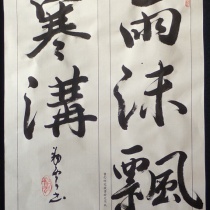 雨沫飄
寒溝